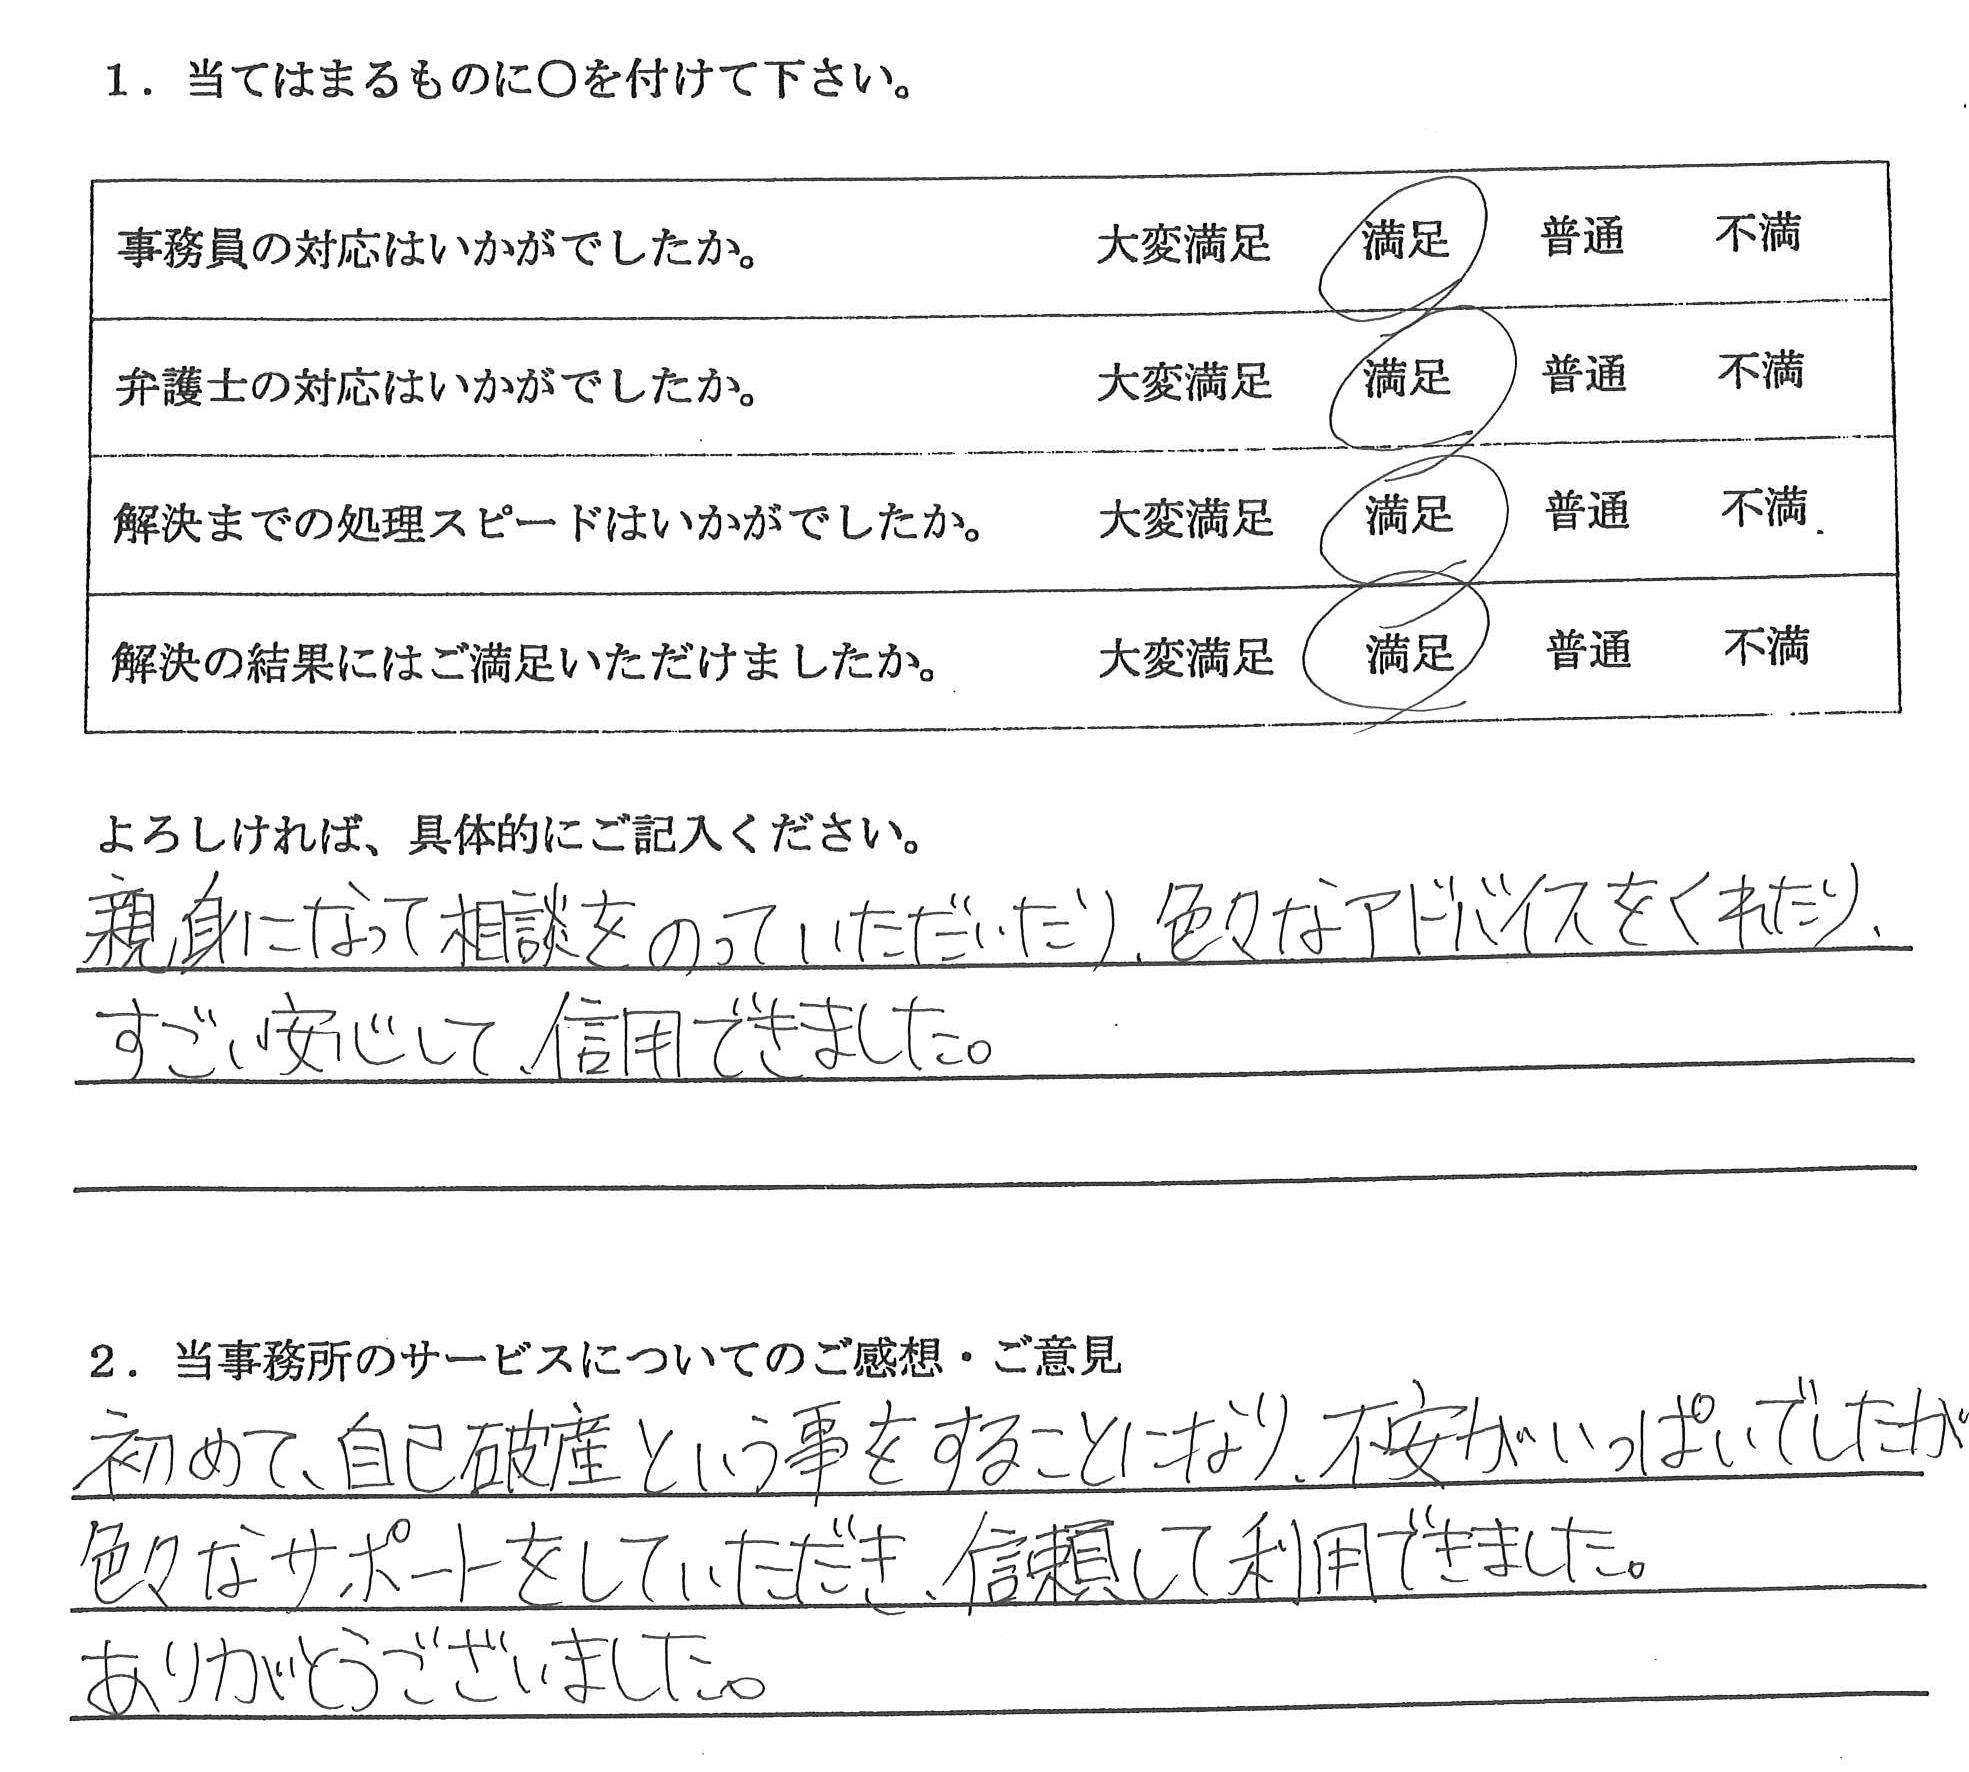 1．当てはまるものに〇を付けて下さい。
事務員の対応はいかがでしたか。 大変満足 満足 普通 不満
弁護士の対応はいかがでしたか。 大変満足 満足 普通 不満
解決までの処理スピードはいかがでしたか。 大変満足 満足 普通 不満
解決の結果にはご満足いただけましたか。 大変満足 満足 普通 不満
よろしければ、具体的にご記入ください。
親身になって相談をのっていただいだり、色々なアドバイスをくれたり、
すごい安心して、信用できました。
2．当事務所のサービスについてのご感想・ご意見
初めて、自己破産という事をすることになり、不安がいっぱいでしたが
色々なサポートをしていただき、信頼して利用できました。
ありがとうございました。